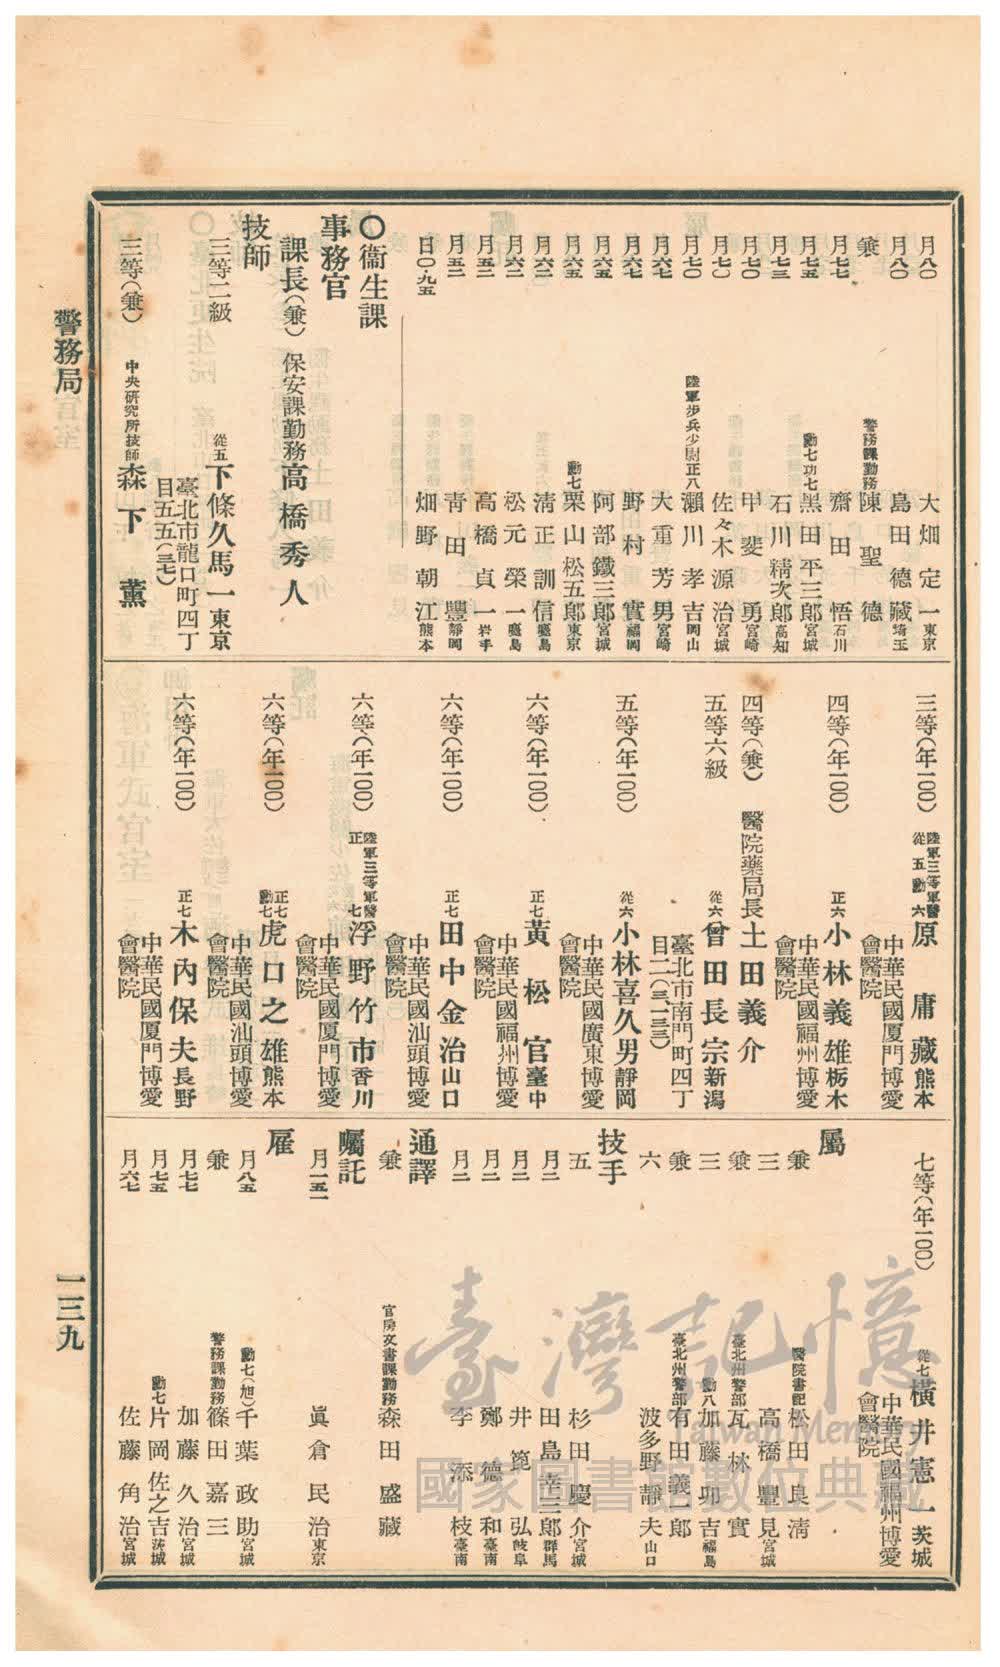 月八〇 大畑定一 東京
月八〇 島田德藏 埼玉
兼 警務課勤務 陳聖德
月七七 齋田悟 石川
月七五 勳七功七 黑田平三郎 宮城
月七三 石川精次郎 高知
月七〇 甲斐勇 宮崎
月七〇 佐々木源治 宮城
月七〇 陸軍步兵少尉正八 瀨川孝吉 岡山
月六七 大重芳男 宮崎
月六七 野村實 福岡
月六五 阿部鐵三郎 宮城
月六五 勳七 栗山松五郎 東京
月六二 淸正訓信 廣島
月六二 松元榮一 鹿島
月五二 高橋貞一 岩手
月五二 靑田豐 靜岡
日〇・九五 畑野朝江 熊本
〇衞生課
事務官
課長(兼) 保安課勤務 高橋秀人
技師
三等二級 從五 下條久馬一 東京
臺北市龍口町四丁
目五五(三七)
三等(兼) 中央硏究所技師 森下薰
三等(年一〇〇) 陸軍三等軍醫 從五勳六 原庸藏 熊本
中華民國厦門博愛
會醫院
四等(年一〇〇) 正六 小林義雄 栃木
中華民國福州博愛
會醫院
四等(兼) 醫院藥局長 土田義介
五等六級 從六 曾田長宗 新潟
臺北市南門町四丁
目二(三、一三三)
五等(年一〇〇) 從六 小林喜久男 靜岡
中華民國廣東博愛
會醫院
六等(年一〇〇) 正七 黃松官 臺中
中華民國福州博愛
會醫院
六等(年一〇〇) 正七 田中金治 山口
中華民國汕頭博愛
會醫院
六等(年一〇〇) 陸軍三等軍醫 正七 浮野竹市 香川
中華民國厦門博愛
會醫院
六等(年一〇〇) 正七 勳七 虎口之雄 熊本
中華民國汕頭博愛
會醫院
六等(年一〇〇) 正七 木內保夫 長野
中華民國厦門博愛
會醫院
七等(年一〇〇) 從七 橫井憲一 茨城
中華民國福州博愛
會醫院
屬
兼 醫院書記 松田良淸
三 高橋豐見 宮城
兼 臺北州警部 瓦林實
三 勳八 加藤卯吉 福島
兼 臺北州警部 有田義郎
六 波多野靜夫 山口
技手
五 杉田慶介 宮城
月二 田島幸三郎 群馬
月二 井箆弘 岐阜
月二 鄭德和 臺南
月二 李添枝 臺南
通譯
兼 官房文書課勤務 森田盛藏
囑託
月一五一 眞倉民治 東京
雇
月八五 勳七(旭) 千葉政助 宮城
兼 警務課勤務 篠田嘉三
月七七 加藤久治 宮城
月七五 勳七 片岡佐之吉 茨城
月六七 佐藤角治 宮城
警務局
一三九
臺灣記憶
Taiwan Memory
國家圖書館數位典藏